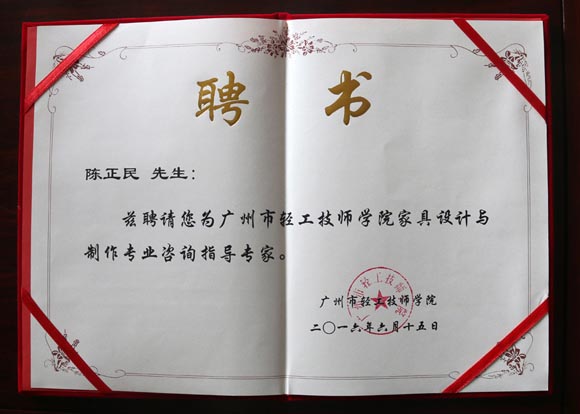 聘书
陈正民 先生：
兹聘请您为广州市轻工技师学院家具设计与
制作专业咨询指导专家。
广州市轻工技师学院
二〇一六年六月十五日
广州市轻工技师学院